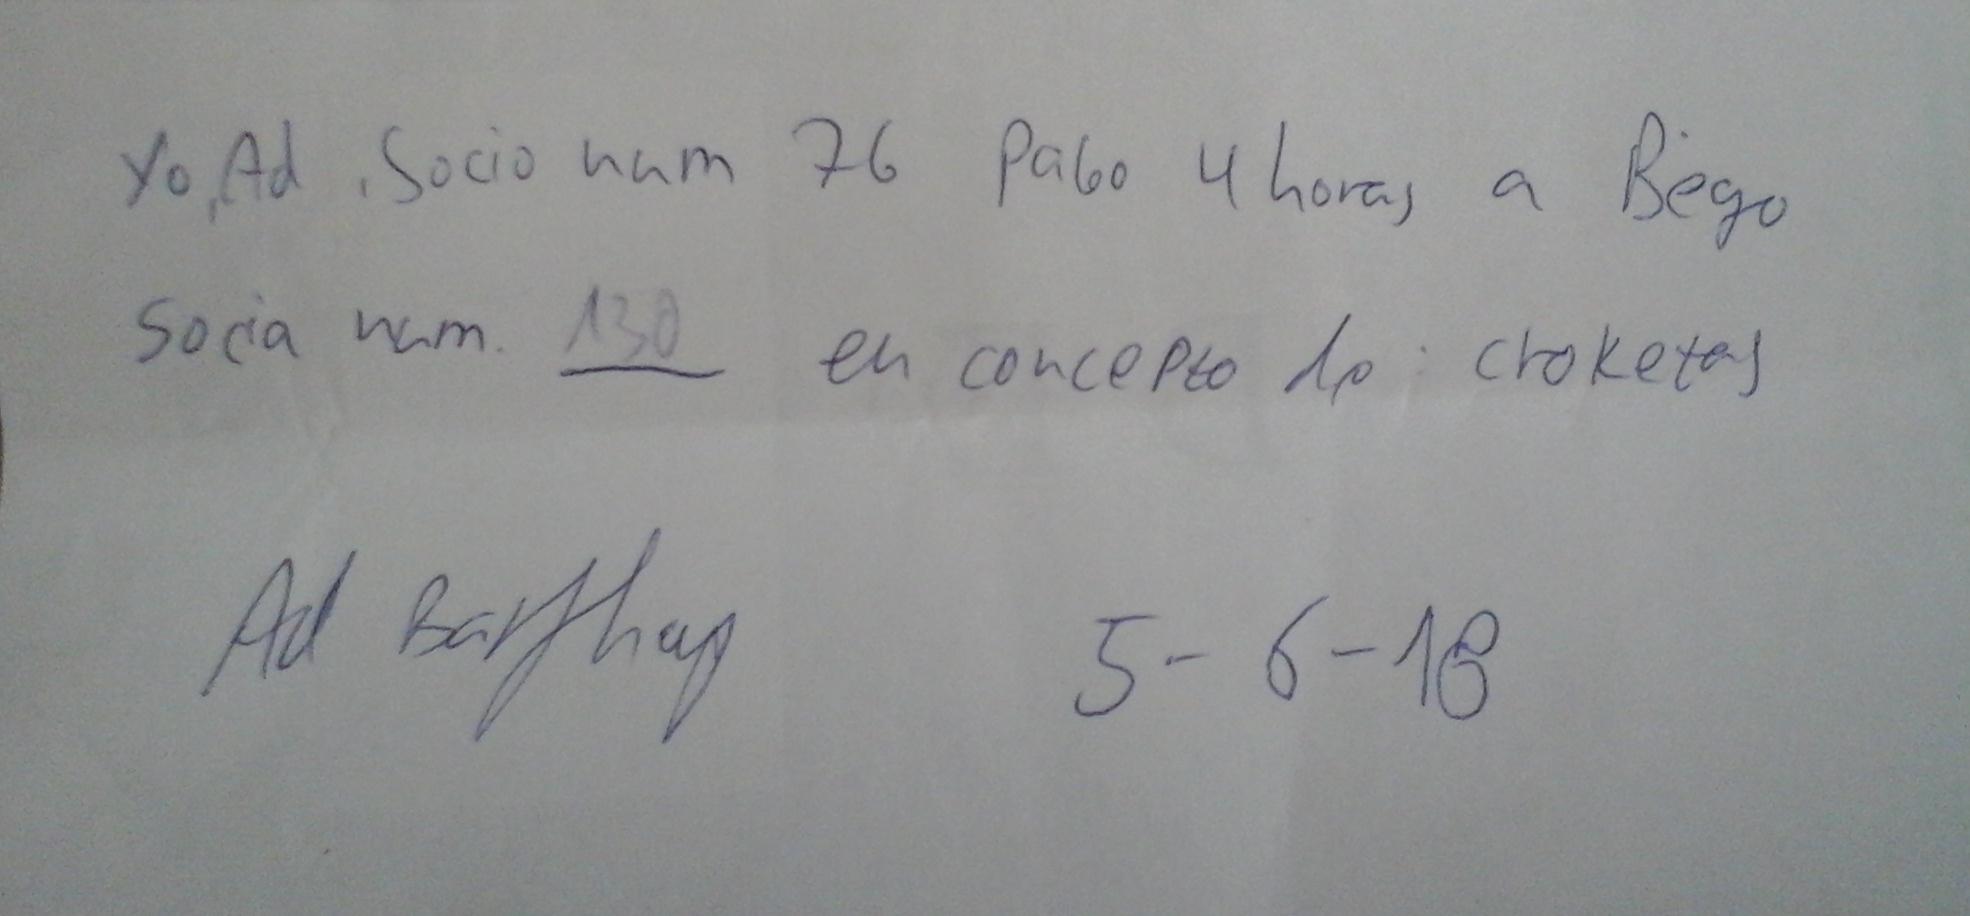 Yo, Ad, Socio num 76 Pago 4 horas a Bego
Socia num. 130 en concepto de: croketas
Ad 5-6-18